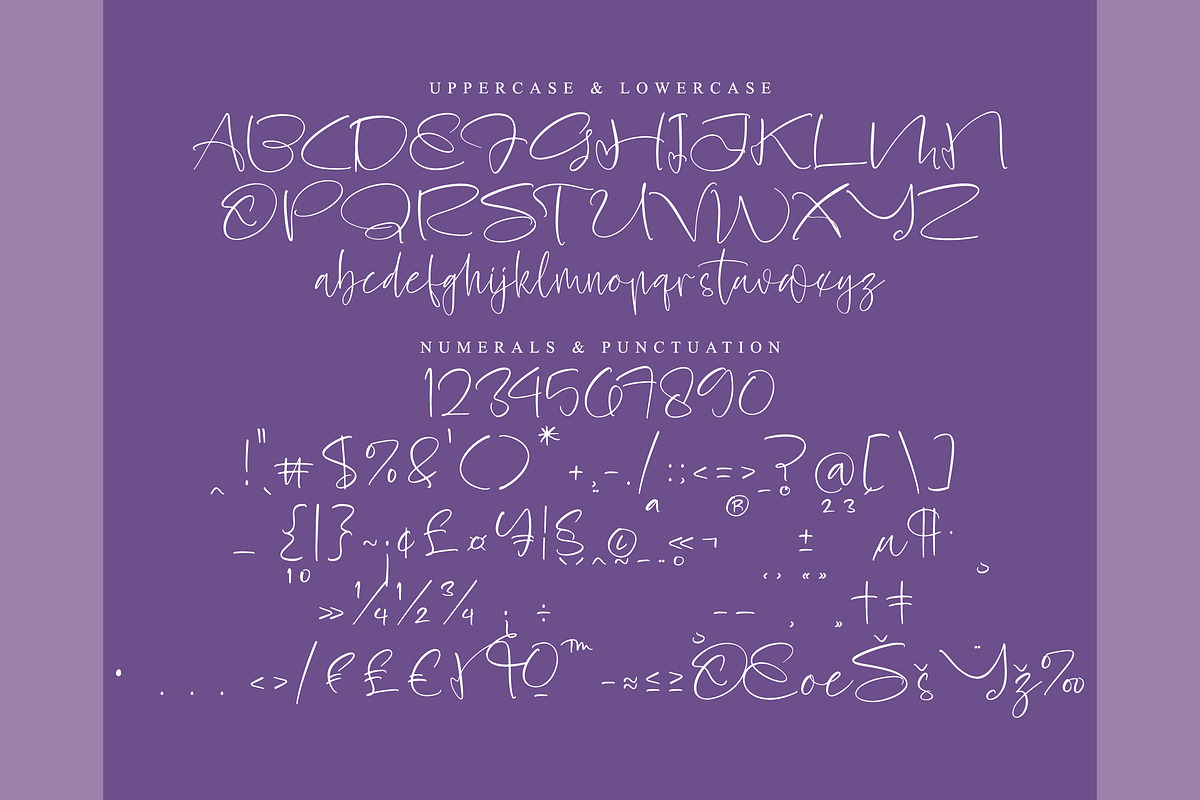 UPPERCASE & LOWERCASE
ABCDEFGHIJKLMN
OPQRSTUVWXYZ
abcdefghijklmnopqrstuvwxyz
NUMERALS & PUNCTUATION
1234567890
!"#$%&'()*+,-./:;<=>?@[\]
{|}~¡¢£¤¥¦§©«¬±µ¶·
»¼½¾¿÷†‡
•...‹›/₣₤€™−≈≤≥ŒœŠšŸž‰